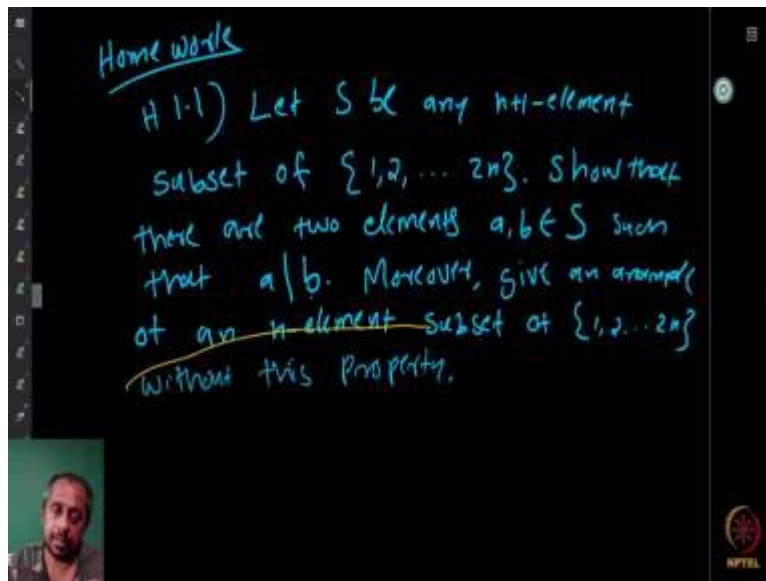 Home work
H 1.1) Let S be any n+1-element
subset of {1,2, ... 2n}. Show that
there are two elements a,b ∈ S such
that a|b. Moreover, give an example
of an n-element subset of {1,2...2n}
without this property.
NPTEL